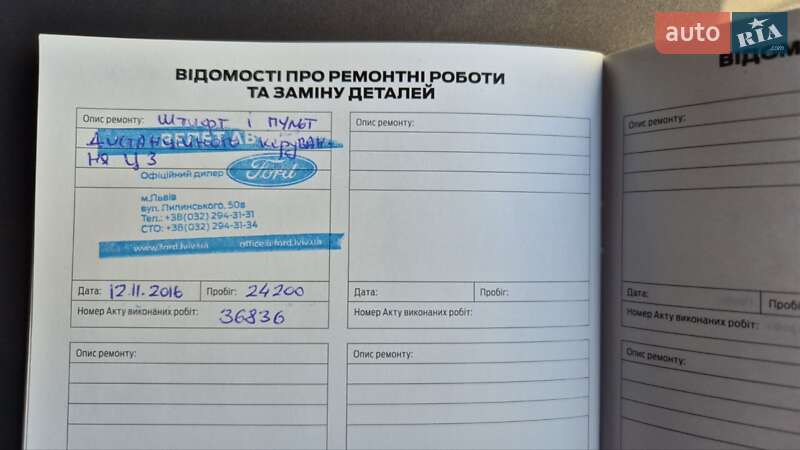 auto RIA.com
ВІДОМОСТІ ПРО РЕМОНТНІ РОБОТИ
ТА ЗАМІНУ ДЕТАЛЕЙ
ВІДОМ
Опис ремонту: Штифт і пульт
Дистанційного керуван-
ня ЦЗ
Офіційний дилер Ford
м.Львів
вул. Липинського, 50в
Тел.: +38(032) 294-31-31
СТО: +38(032) 294-31-34
www.ford.lviv.ua office@ford.lviv.ua
Дата: 12.11.2016 Пробіг: 24200
Номер Акту виконаних робіт: 36836
Опис ремонту:
Дата: Пробіг:
Номер Акту виконаних робіт:
Опис ремонту:
Дата: Пробіг
Номер Акту виконаних робіт:
Опис ремонту:
Опис ремонту:
Опис ремонту: